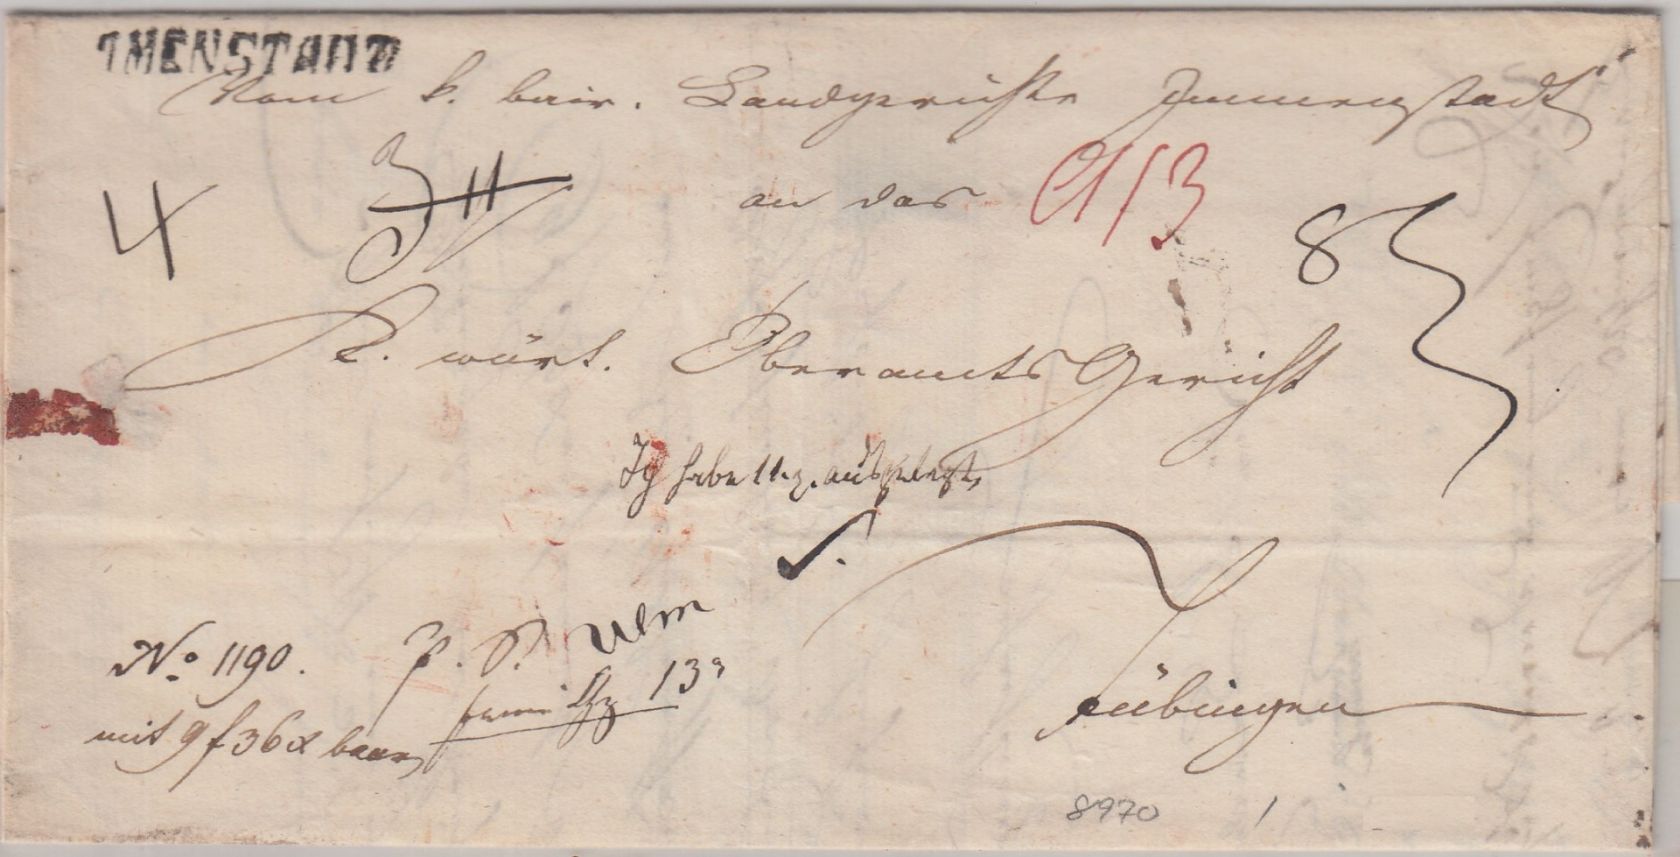 IMENSTADT
Vom k. bair. Landgerichte Immenstadt
4
an das
K. würt. Oberamts Gericht
8
Ich habe 11 x. ausgelegt,
Ulm
No. 1190.
13
mit 9 f 36 x baar
Tübingen
8970